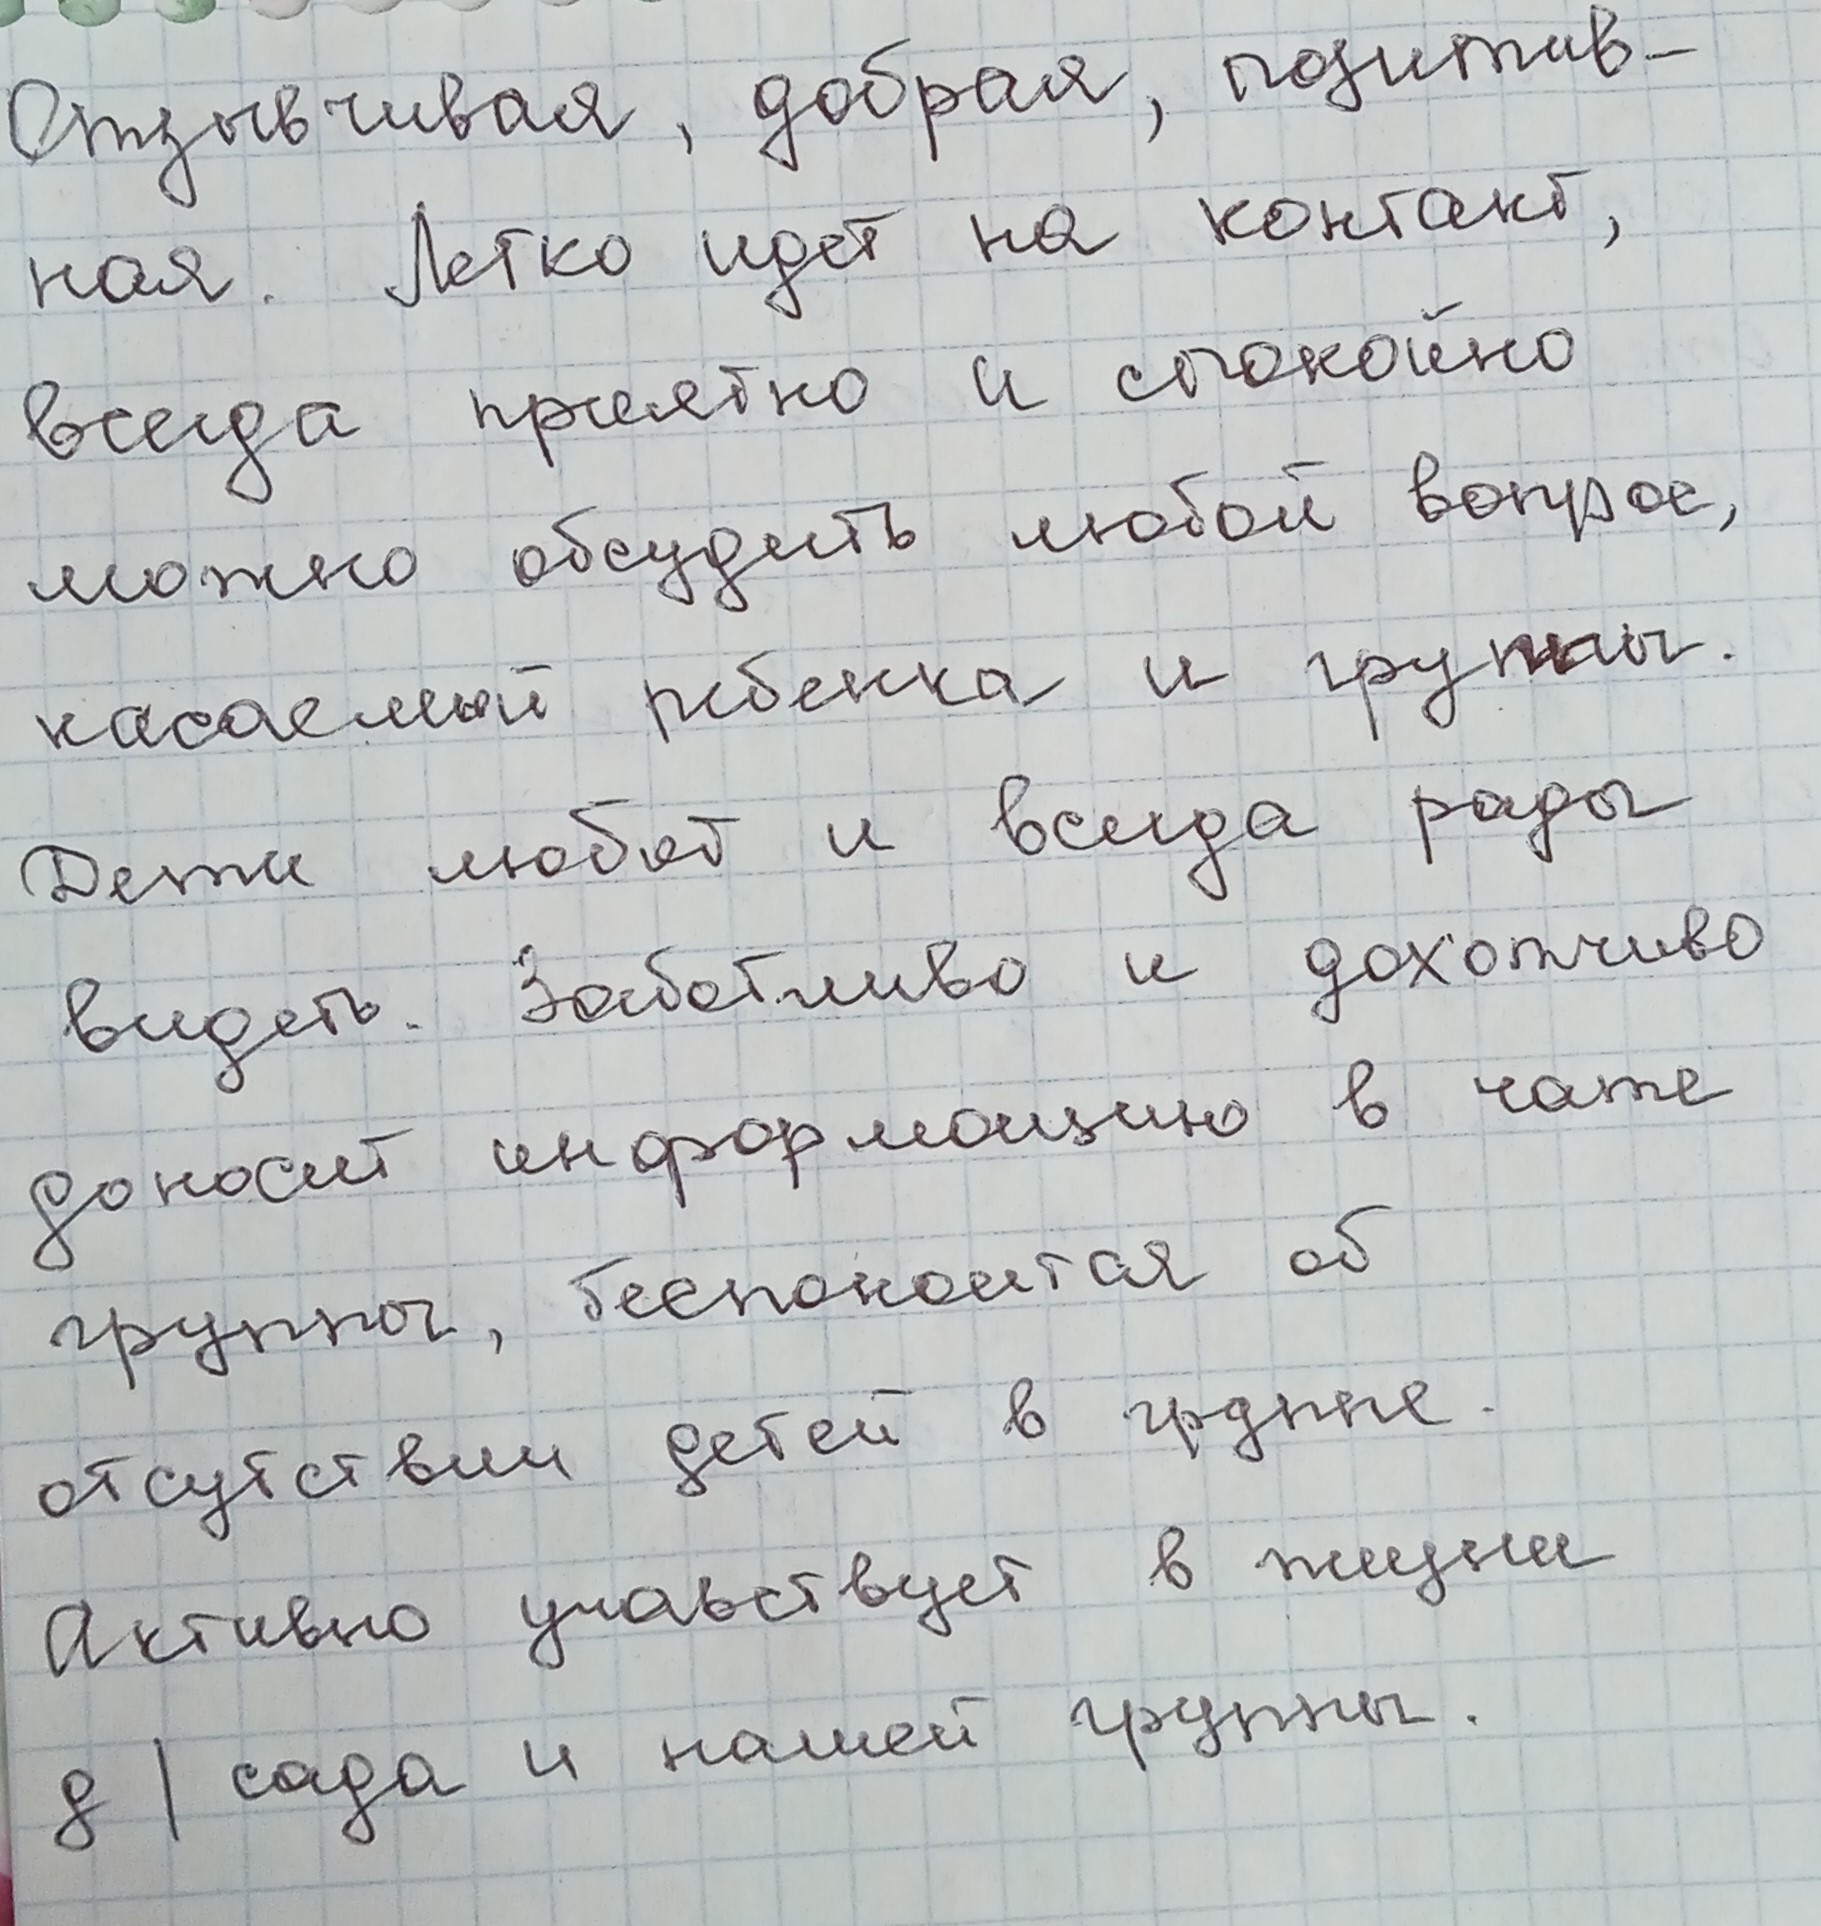 Отзывчивая, добрая, позитив-
ная. Легко идет на контакт,
всегда приятно и спокойно
можно обсудить любой вопрос,
касаемый ребенка и группы.
Дети любят и всегда рады
видеть. Заботливо и дохотчиво
доносит информацию в чате
группы, беспокоится об
отсутствии детей в группе.
Активно учавствует в жизни
д/сада и нашей группы.